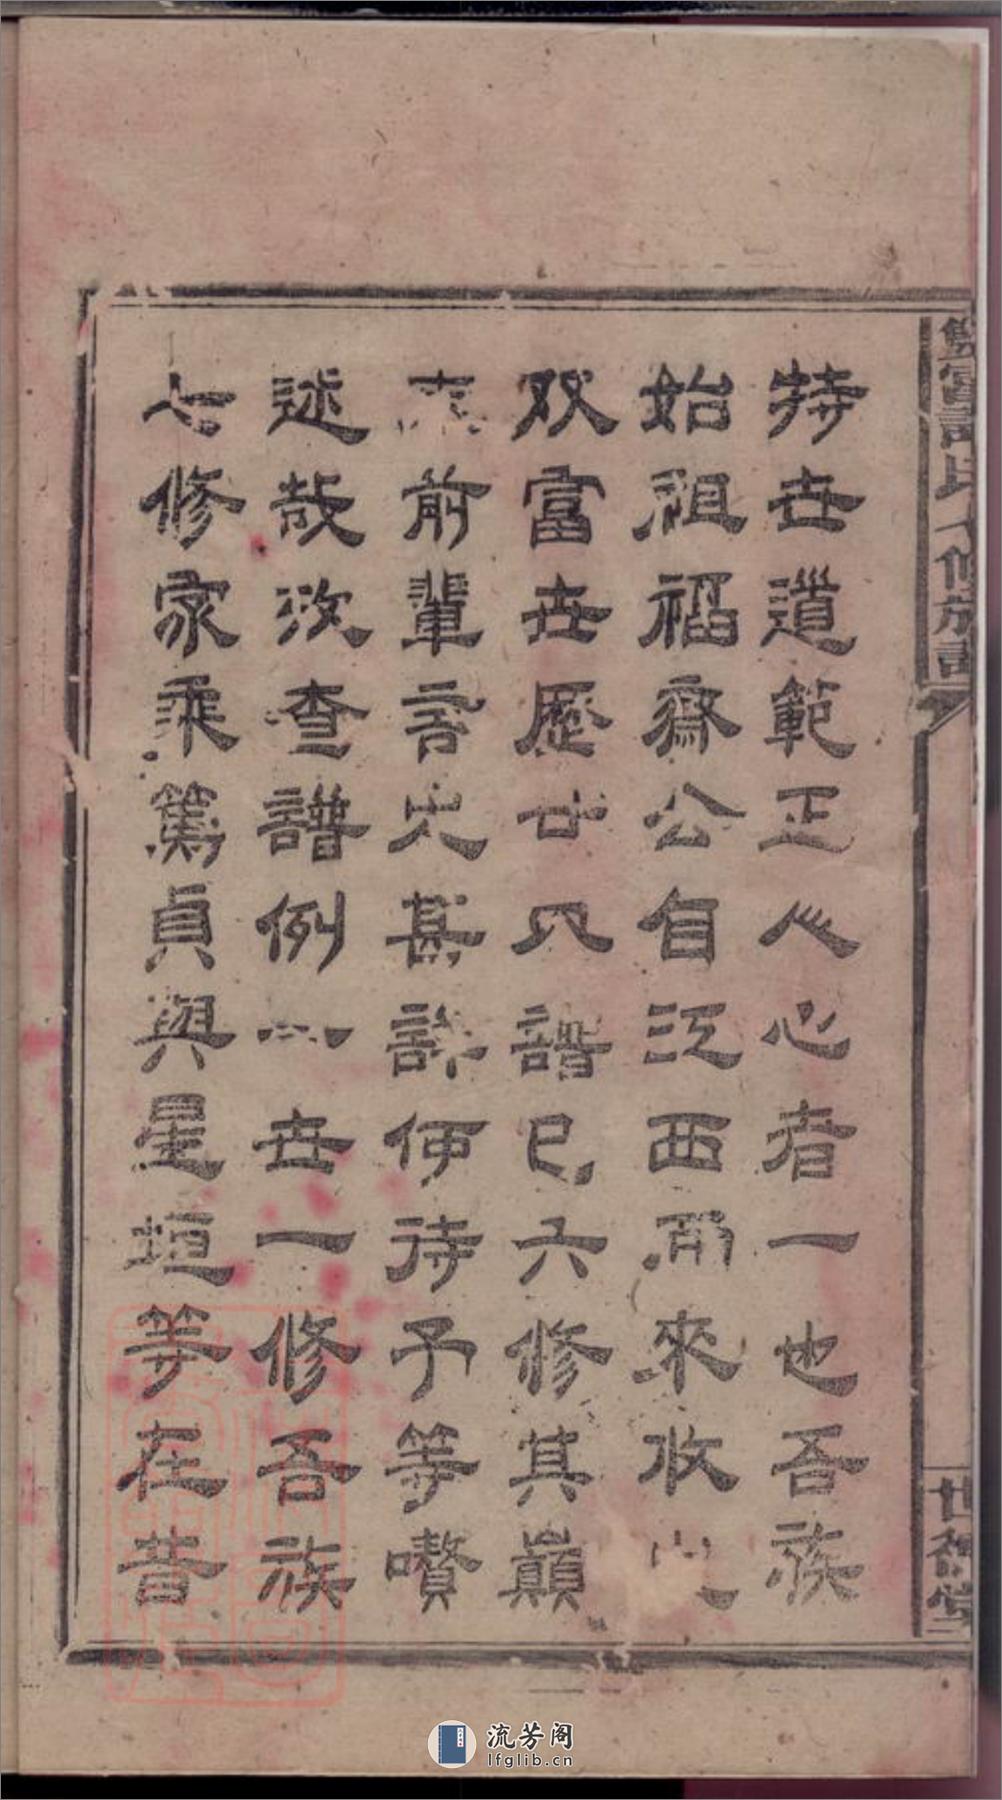 持世道範正人心者一也吾族
始祖福齋公自江西而來收
双富世歷廿八譜已六修其巔
末前輩言之甚詳何待予等贅
述哉茲查譜例一世一修吾族
七修家乘篤貞與星垣等在昔
雙富許氏七修族譜
世德堂二
流芳阁
lfglib.cn